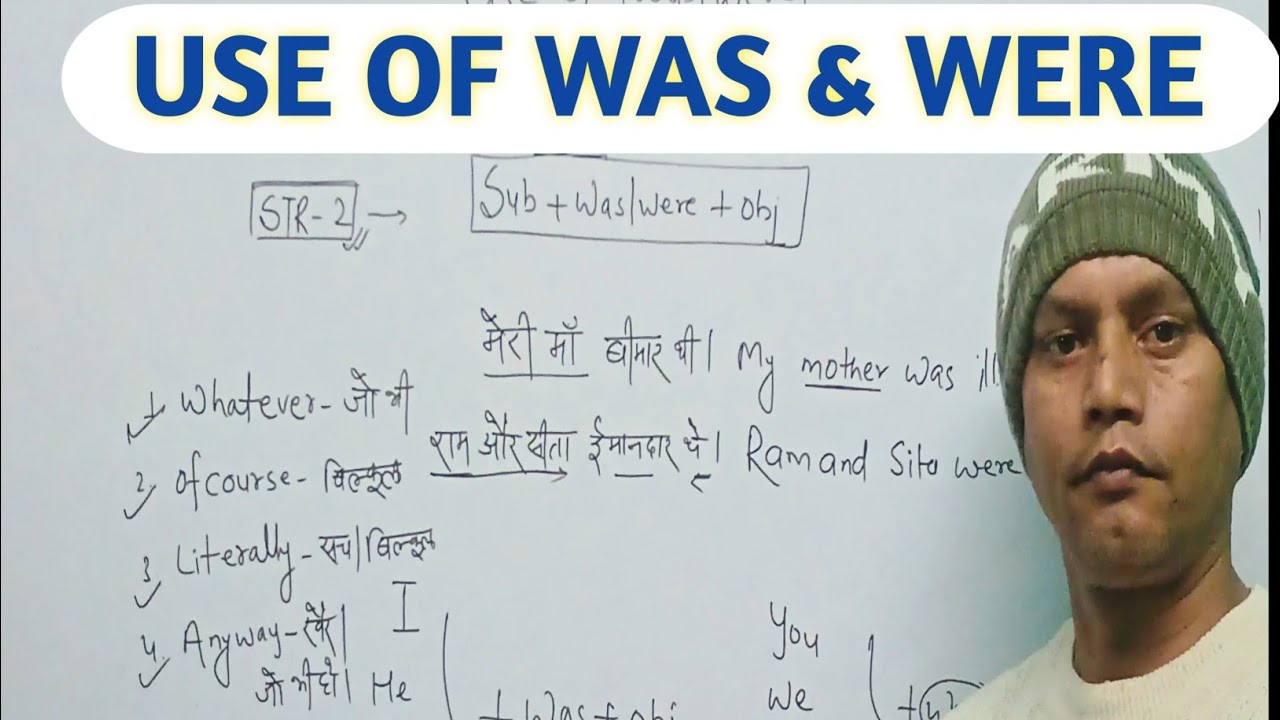 USE OF WAS & WERE
STR-2 → Sub + Was/were + obj
मेरी माँ बीमार थी। My mother was ill
राम और सीता ईमानदार थे। Ram and Sita were
1 Whatever - जो भी
2 Of course - बिल्कुल
3 Literally - सच/बिल्कुल
4 Anyway - खैर/
जो भी हो।
I
He
+ Was + obj
You
We